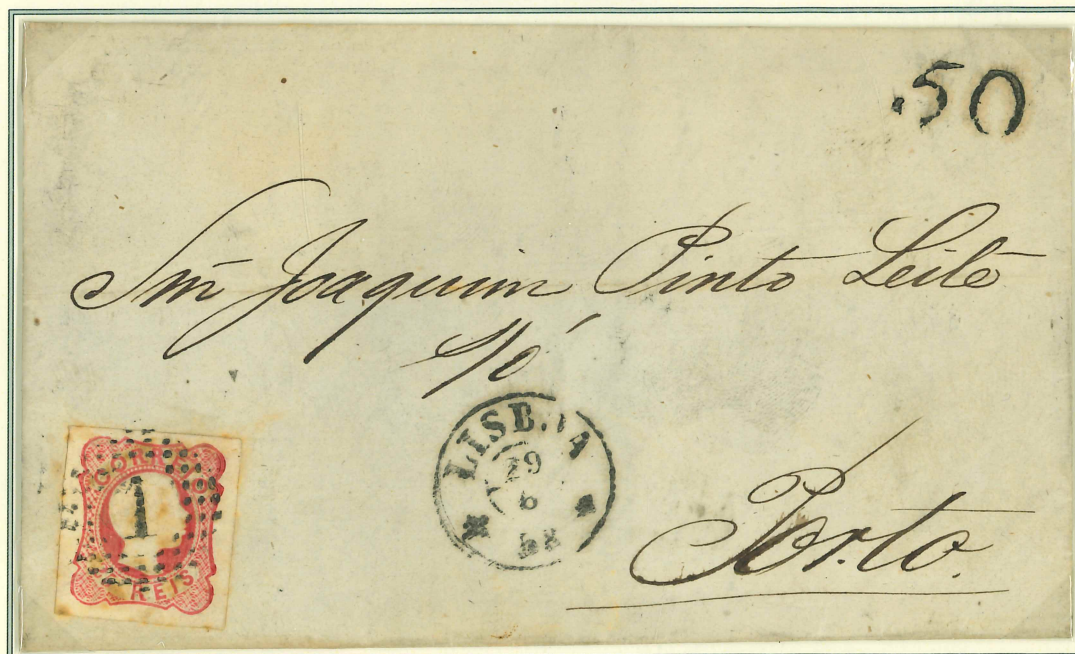 50
Snr Joaquim Pinto Leite
LISBOA
29
6
Porto.
CORREIO
1
REIS